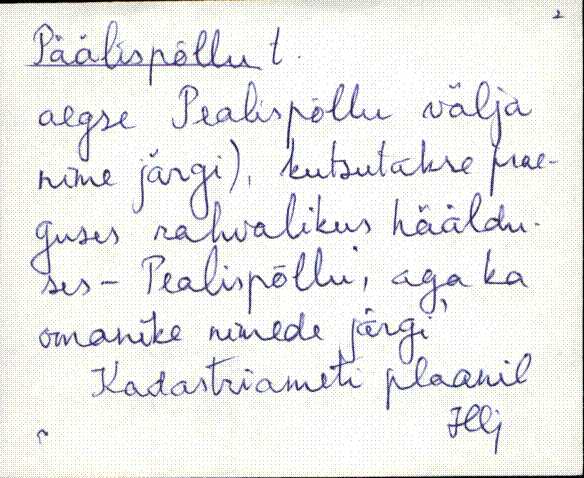 2
Päälispõllu t.
aegse Pealispõllu välja
nime järgi), kutsutakse prae-
guses rahvalikus hääldu-
ses - Pealispõllu, aga ka
omanike nimede järgi
Kadastriameti plaanil